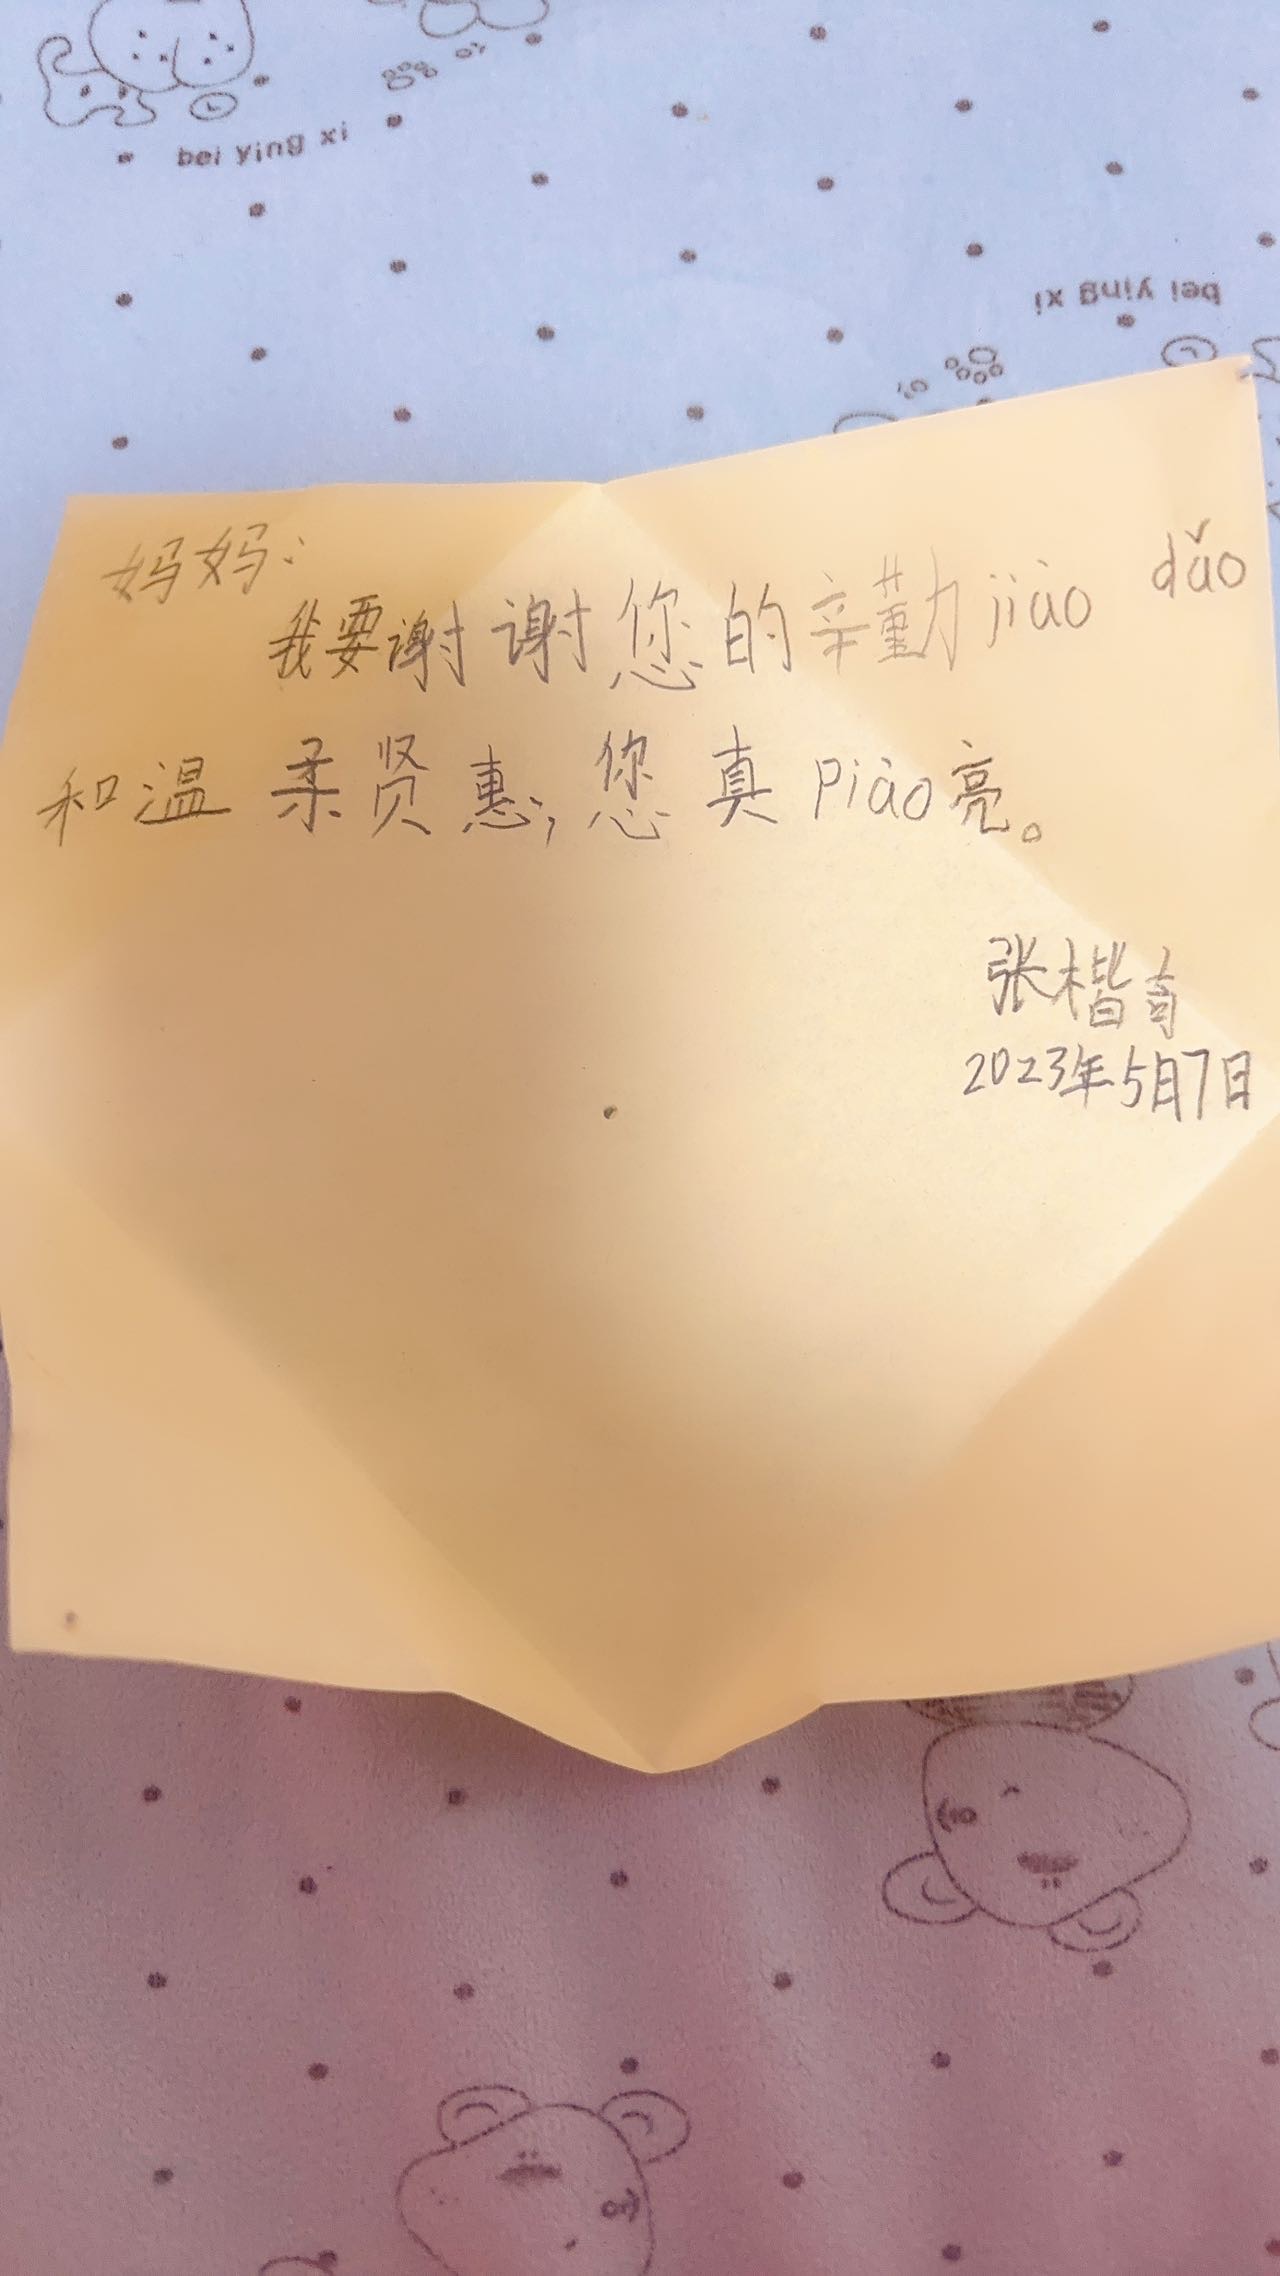 bei ying xi
bei ying xi
妈妈：
我要谢谢您的辛勤jiào dǎo
和温柔贤惠，您真piào亮。
张楷奇
2023年5月7日